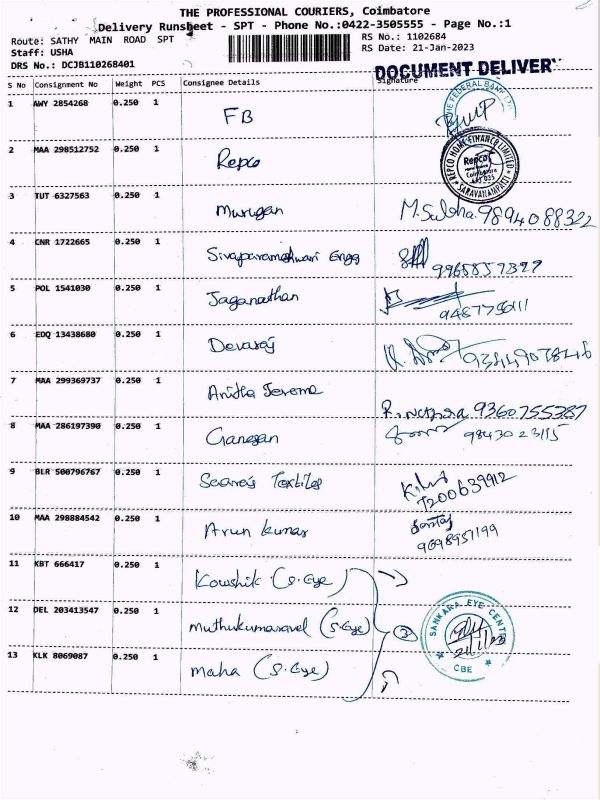 THE PROFESSIONAL COURIERS, Coimbatore
Delivery Runsheet - SPT - Phone No.:0422-3505555 - Page No.:1
Route: SATHY MAIN ROAD SPT
RS No.: 1102684
Staff: USHA
RS Date: 21-Jan-2023
DRS No.: DCJB110268401
DOCUMENT DELIVERY
S No Consignment No Weight PCS Consignee Details Signature
1 AWY 2854268 0.250 1 FB
THE FEDERAL BANK LTD
2 MAA 298512752 0.250 1 Repco
REPCO HOME FINANCE LIMITED
Repco
Coimbatore
641 035
SARAVANAMPATTI
3 TUT 6327563 0.250 1 Murugan M. Subha. 9894088322
4 CNR 1722665 0.250 1 Sivaparameshwari Engg 9965857327
5 POL 1541030 0.250 1 Jaganathan
6 EDQ 13438680 0.250 1 Devaraj
7 MAA 299369737 0.250 1 Anitha Jerome 9360755387
8 MAA 286197390 0.250 1 Ganesan 9843023115
9 BLR 500796767 0.250 1 Textiles 7200639912
10 MAA 298884542 0.250 1 Arun kumar 9098957199
11 KBT 666417 0.250 1 Koushik (S.Eye)
12 DEL 203413547 0.250 1 Muthukumaravel (S.Eye) 3
SANKARA EYE CENTRE
21/1/23
CBE
13 KLK 8069087 0.250 1 Maha (S.Eye)